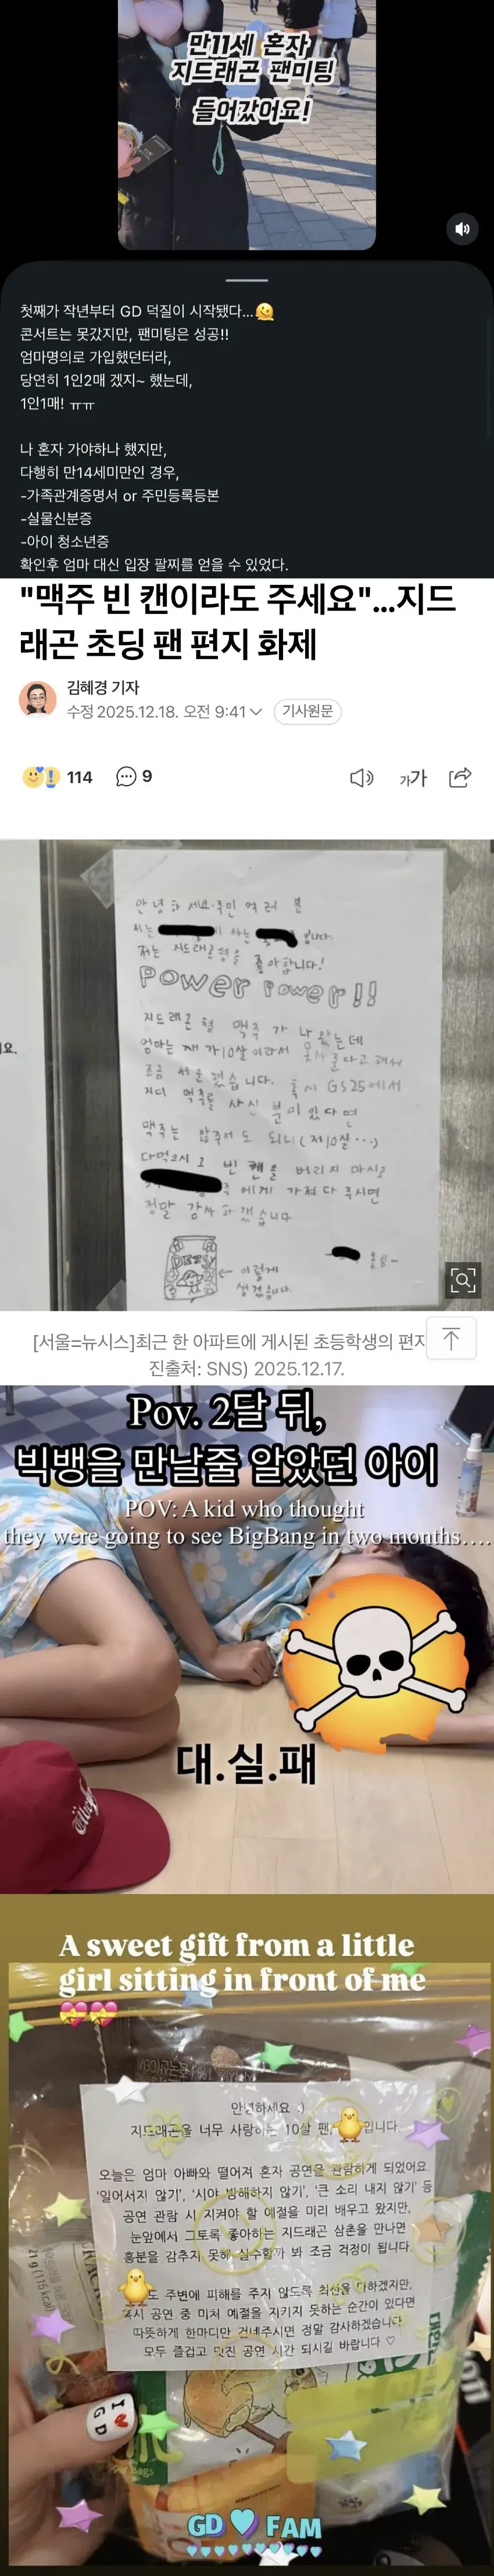 만11세 혼자
지드래곤 팬미팅
들어갔어요!
첫째가 작년부터 GD 덕질이 시작됐다...🫠
콘서트는 못갔지만, 팬미팅은 성공!!
엄마명의로 가입했던터라,
당연히 1인2매 겠지~ 했는데,
1인1매! ㅠㅠ
나 혼자 가야하나 했지만,
다행히 만14세미만인 경우,
-가족관계증명서 or 주민등록등본
-실물신분증
-아이 청소년증
확인후 엄마 대신 입장 팔찌를 얻을 수 있었다.
"맥주 빈 캔이라도 주세요"…지드
래곤 초딩 팬 편지 화제
김혜경 기자
수정 2025.12.18. 오전 9:41
기사원문
114
9
가가
안녕하세요 주민 여러분
저는 사는 입니다.
저는 지드래곤형을 좋아합니다!
Power Power!!
지드래곤 형 맥주가 나왔는데
엄마는 제가 10살이라서 못사준다고 해서
조금 서운했습니다. 혹시 GS25에서
지디 맥주를 사신 분이 있다면
요.
맥주는 안주셔도 되니 (제10살...)
다먹으시고 빈 캔을 버리지 마시고
에게 가져다 주시면
정말 감사하겠습니다
이렇게
생겼습니다.
[서울=뉴시스]최근 한 아파트에 게시된 초등학생의 편지
진출처: SNS) 2025.12.17.
Pov. 2달 뒤,
빅뱅을 만날줄 알았던 아이
POV: A kid who thought
they were going to see BigBang in two months....
대.실.패
A sweet gift from a little
girl sitting in front of me
💝💝
안녕하세요 :)
지드래곤을 너무 사랑하는 10살 팬, 입니다.
오늘은 엄마 아빠와 떨어져 혼자 공연을 관람하게 되었어요.
'일어서지 않기', '시야 방해하지 않기', '큰 소리 내지 않기' 등
공연 관람 시 지켜야 할 예절을 미리 배우고 왔지만,
눈앞에서 그토록 좋아하는 지드래곤 삼촌을 만나면
흥분을 감추지 못해 실수할까 봐 조금 걱정이 됩니다.
도 주변에 피해를 주지 않도록 최선을 다하겠지만,
혹시 공연 중 미처 예절을 지키지 못하는 순간이 있다면
따뜻하게 한마디만 건네주시면 정말 감사하겠습니다.
모두 즐겁고 멋진 공연 시간 되시길 바랍니다 ♡
21 g (115 kcal)
I ♥
GD
Bags
GD FAM